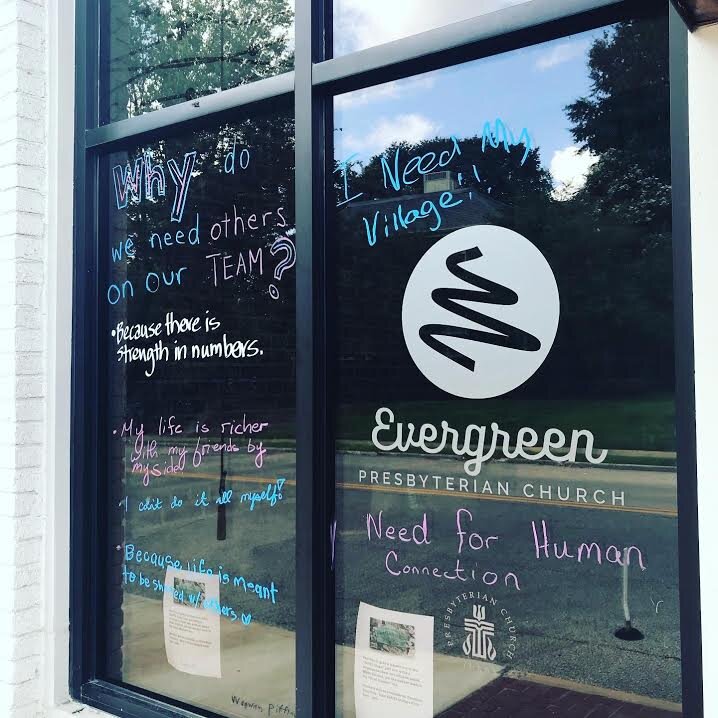 Why do
we need others
on our TEAM?
•Because there is
strength in numbers.
• My life is richer
with my friends by
my side
• I can't do it all myself!
• Because life is meant
to be shared w/ others
I Need My
Village!!
Evergreen
PRESBYTERIAN CHURCH
Need for Human
Connection
PRESBYTERIAN CHURCH